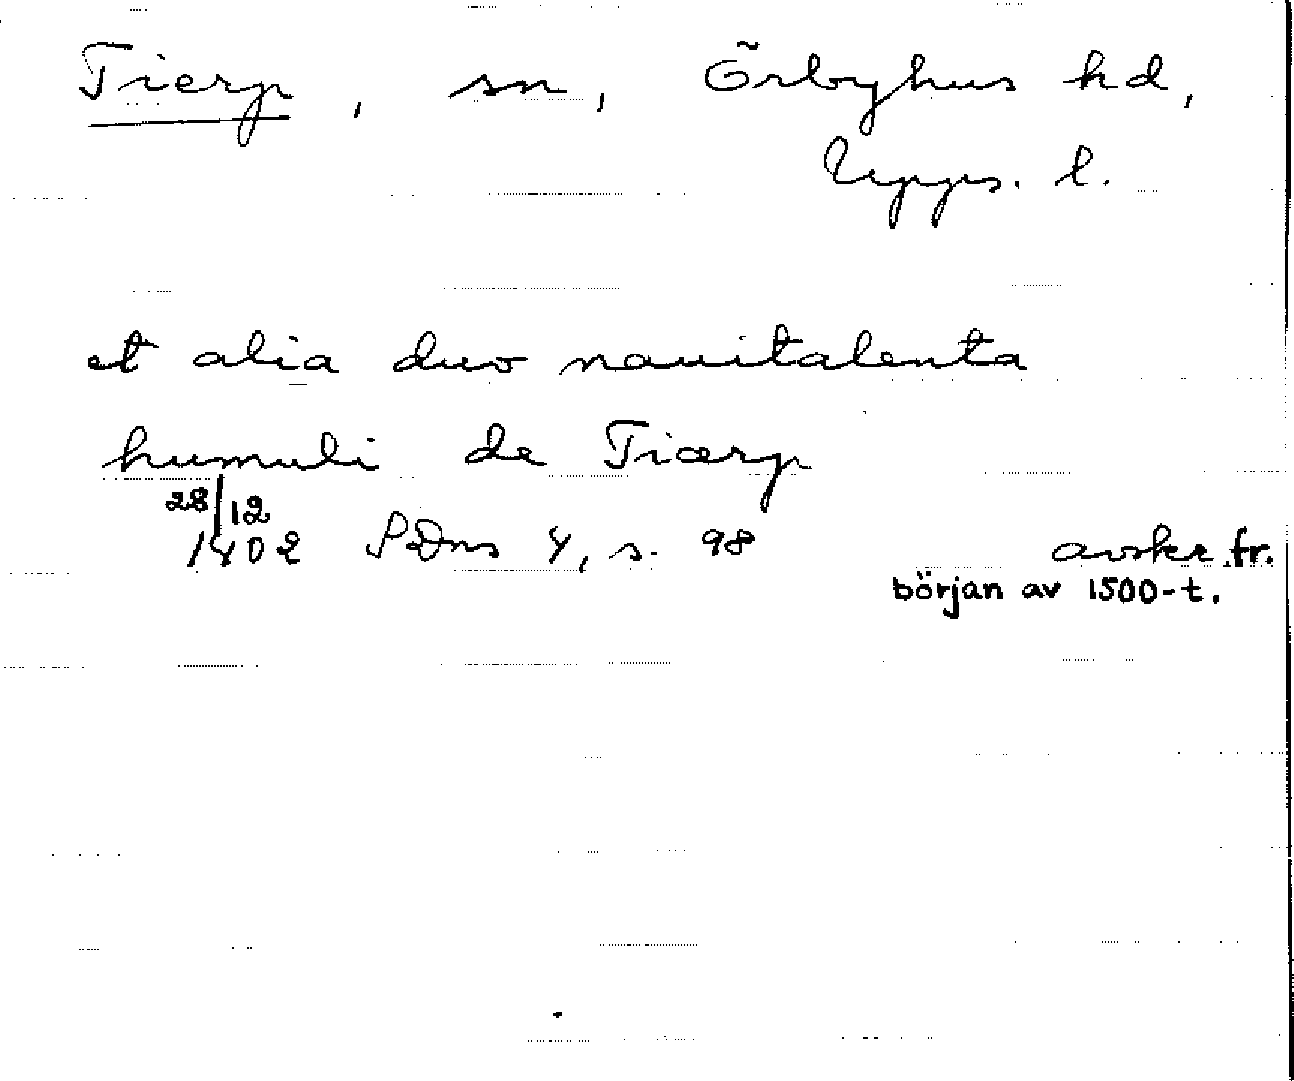 Tierp, sn, Örbyhus hd,
Upps. l.
et alia duo nauitalenta
humuli de Tiærp
28/12
1402 SDns 4, s. 98 avskr fr.
början av 1500-t.